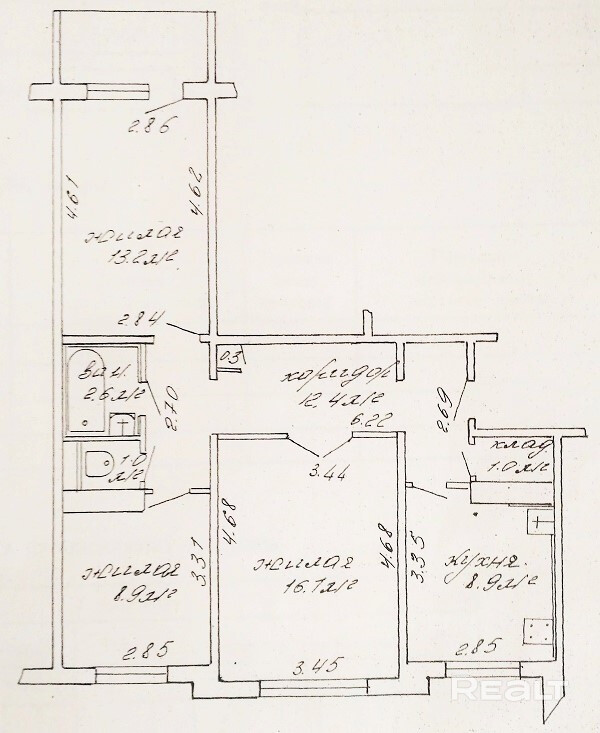 2.86
4.61
4.62
жилая
13.2 м²
2.84
0.3
ван.
2.6 м²
коридор
12.4 м²
6.22
2.70
2.69
клад.
1.0 м²
1.0
м²
3.44
4.68
4.68
3.31
3.35
жилая
8.9 м²
жилая
16.7 м²
кухня.
8.9 м²
2.85
3.45
2.85
REALT